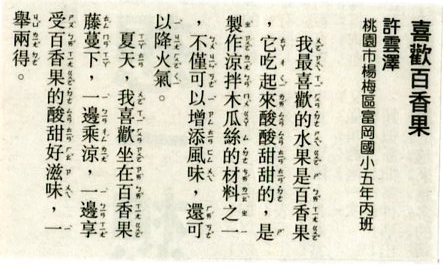 喜歡百香果
許雲澤
桃園市楊梅區富岡國小五年丙班
我最喜歡的水果是百香果
，它吃起來酸酸甜甜的，是
製作涼拌木瓜絲的材料之一
，不僅可以增添風味，還可
以降火氣。
夏天，我喜歡坐在百香果
藤蔓下，一邊乘涼，一邊享
受百香果的酸甜好滋味，一
舉兩得。